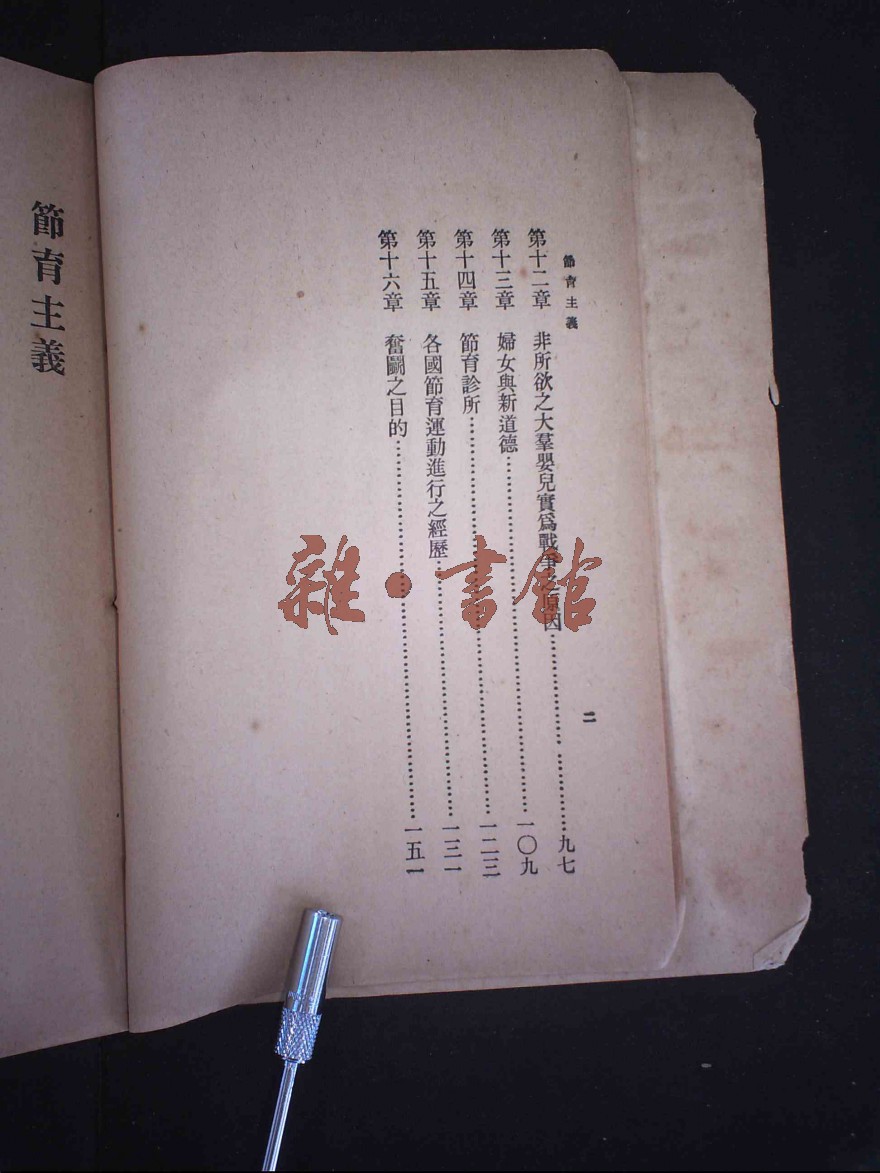 節育主義
二
第十二章 非所欲之大羣嬰兒實爲戰爭之原因…………………九七
第十三章 婦女與新道德…………………一〇九
第十四章 節育診所…………………一二三
第十五章 各國節育運動進行之經歷…………………一三一
第十六章 奮鬭之目的…………………一五一
節育主義
雜·書館